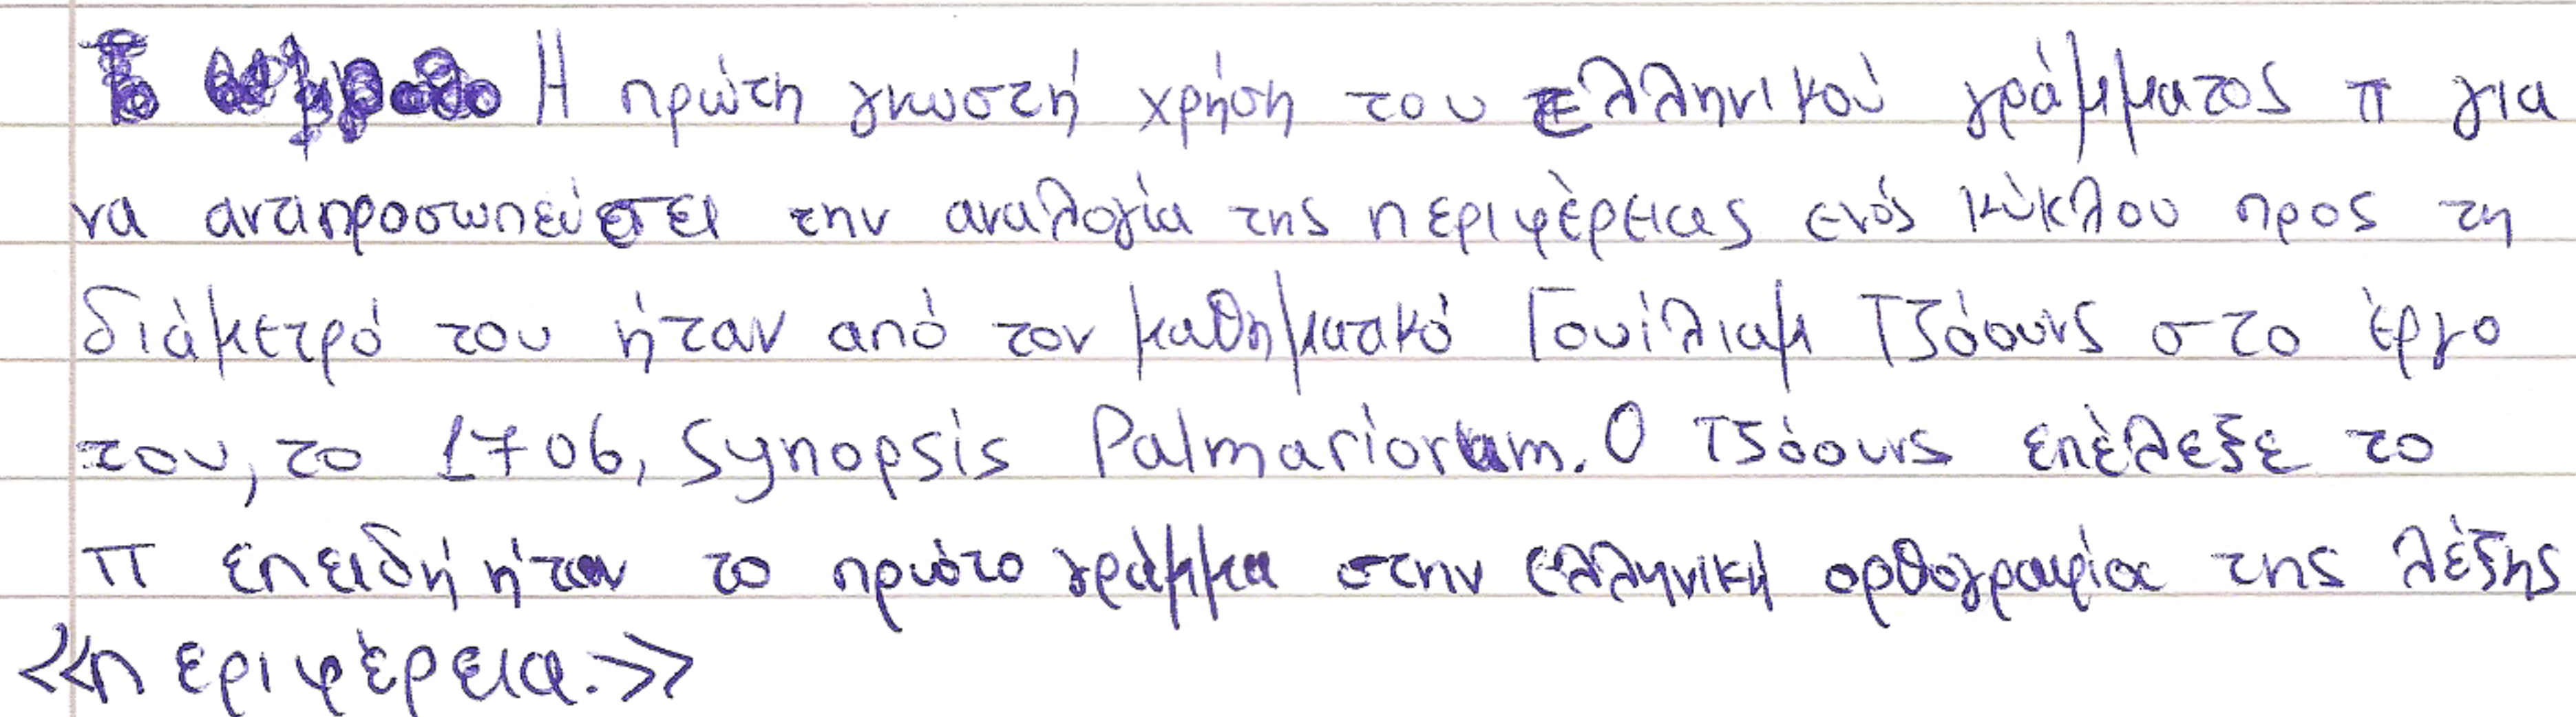 Η πρώτη γνωστή χρήση του ελληνικού γράμματος π για
να αντιπροσωπεύσει την αναλογία της περιφέρειας ενός κύκλου προς τη
διάμετρό του ήταν από τον μαθηματικό Γουίλιαμ Τζόουνς στο έργο
του, το 1706, Synopsis Palmariorum. Ο Τζόουνς επέλεξε το
π επειδή ήταν το πρώτο γράμμα στην ελληνική ορθογραφία της λέξης
<<περιφέρεια.>>